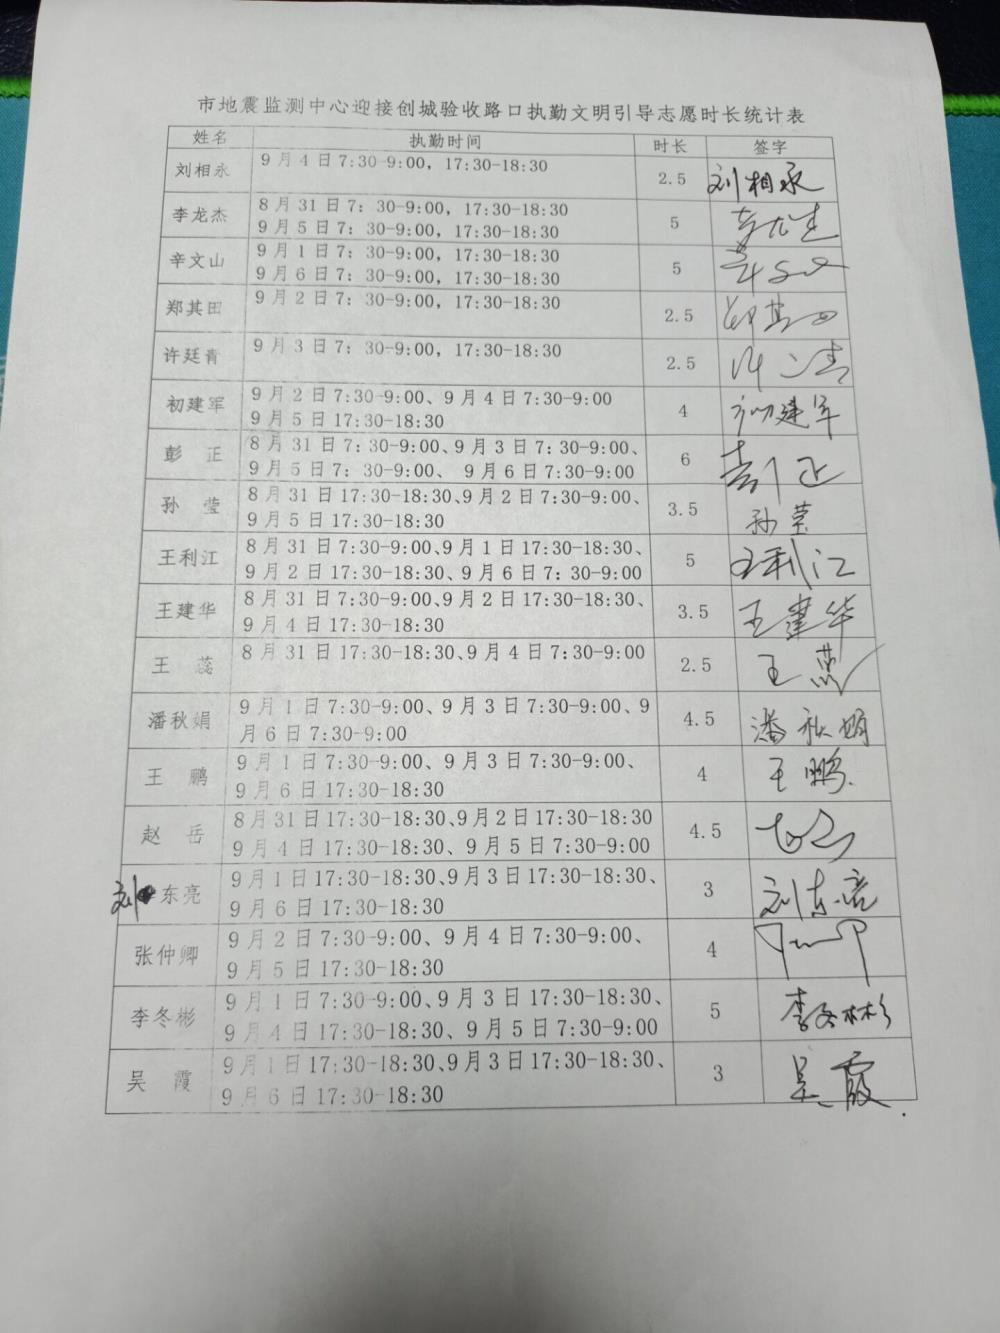 市地震监测中心迎接创城验收路口执勤文明引导志愿时长统计表
姓名 执勤时间 时长 签字
刘相永 9月4日7:30-9:00，17:30-18:30 2.5 刘相永
李龙杰 8月31日7：30-9:00，17:30-18:30 5 李龙杰
9月5日7：30-9:00，17:30-18:30
辛文山 9月1日7：30-9:00，17:30-18:30 5
9月6日7：30-9:00，17:30-18:30
郑其田 9月2日7：30-9:00，17:30-18:30 2.5 郑其田
许廷青 9月3日7：30-9:00，17:30-18:30 2.5 许廷青
初建军 9月2日7:30-9:00、9月4日7:30-9:00 4 初建军
9月5日17:30-18:30
彭正 8月31日7：30-9:00、9月3日7：30-9:00、 6 彭正
9月5日7：30-9:00、 9月6日7:30-9:00
孙莹 8月31日17:30-18:30、9月2日7:30-9:00、 3.5 孙莹
9月5日17:30-18:30
王利江 8月31日7:30-9:00、9月1日17:30-18:30、 5 王利江
9月2日17:30-18:30、9月6日7：30-9:00
王建华 8月31日7:30-9:00、9月2日17:30-18:30、 3.5 王建华
9月4日17:30-18:30
王蕊 8月31日17:30-18:30、9月4日7:30-9:00 2.5 王蕊
潘秋娟 9月1日7:30-9:00、9月3日7:30-9:00、9 4.5 潘秋娟
月6日7:30-9:00
王鹏 9月1日7:30-9:00、9月3日7:30-9:00、 4 王鹏
9月6日17:30-18:30
赵岳 8月31日17:30-18:30、9月2日17:30-18:30 4.5
9月4日17:30-18:30、9月5日7:30-9:00
刘东亮 9月1日17:30-18:30、9月3日17:30-18:30、 3 刘东亮
9月6日17:30-18:30
张仲卿 9月2日7:30-9:00、9月4日7:30-9:00、 4
9月5日17:30-18:30
李冬彬 9月1日7:30-9:00、9月3日17:30-18:30、 5 李冬彬
9月4日17:30-18:30、9月5日7:30-9:00
吴霞 9月1日17:30-18:30、9月3日17:30-18:30、 3 吴霞
9月6日17:30-18:30